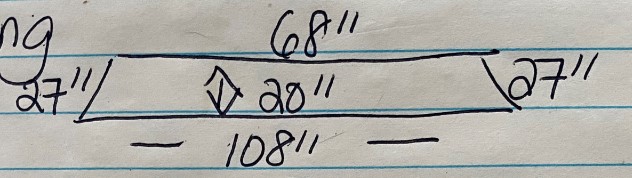 ng
68"
27" 20" 27"
— 108" —